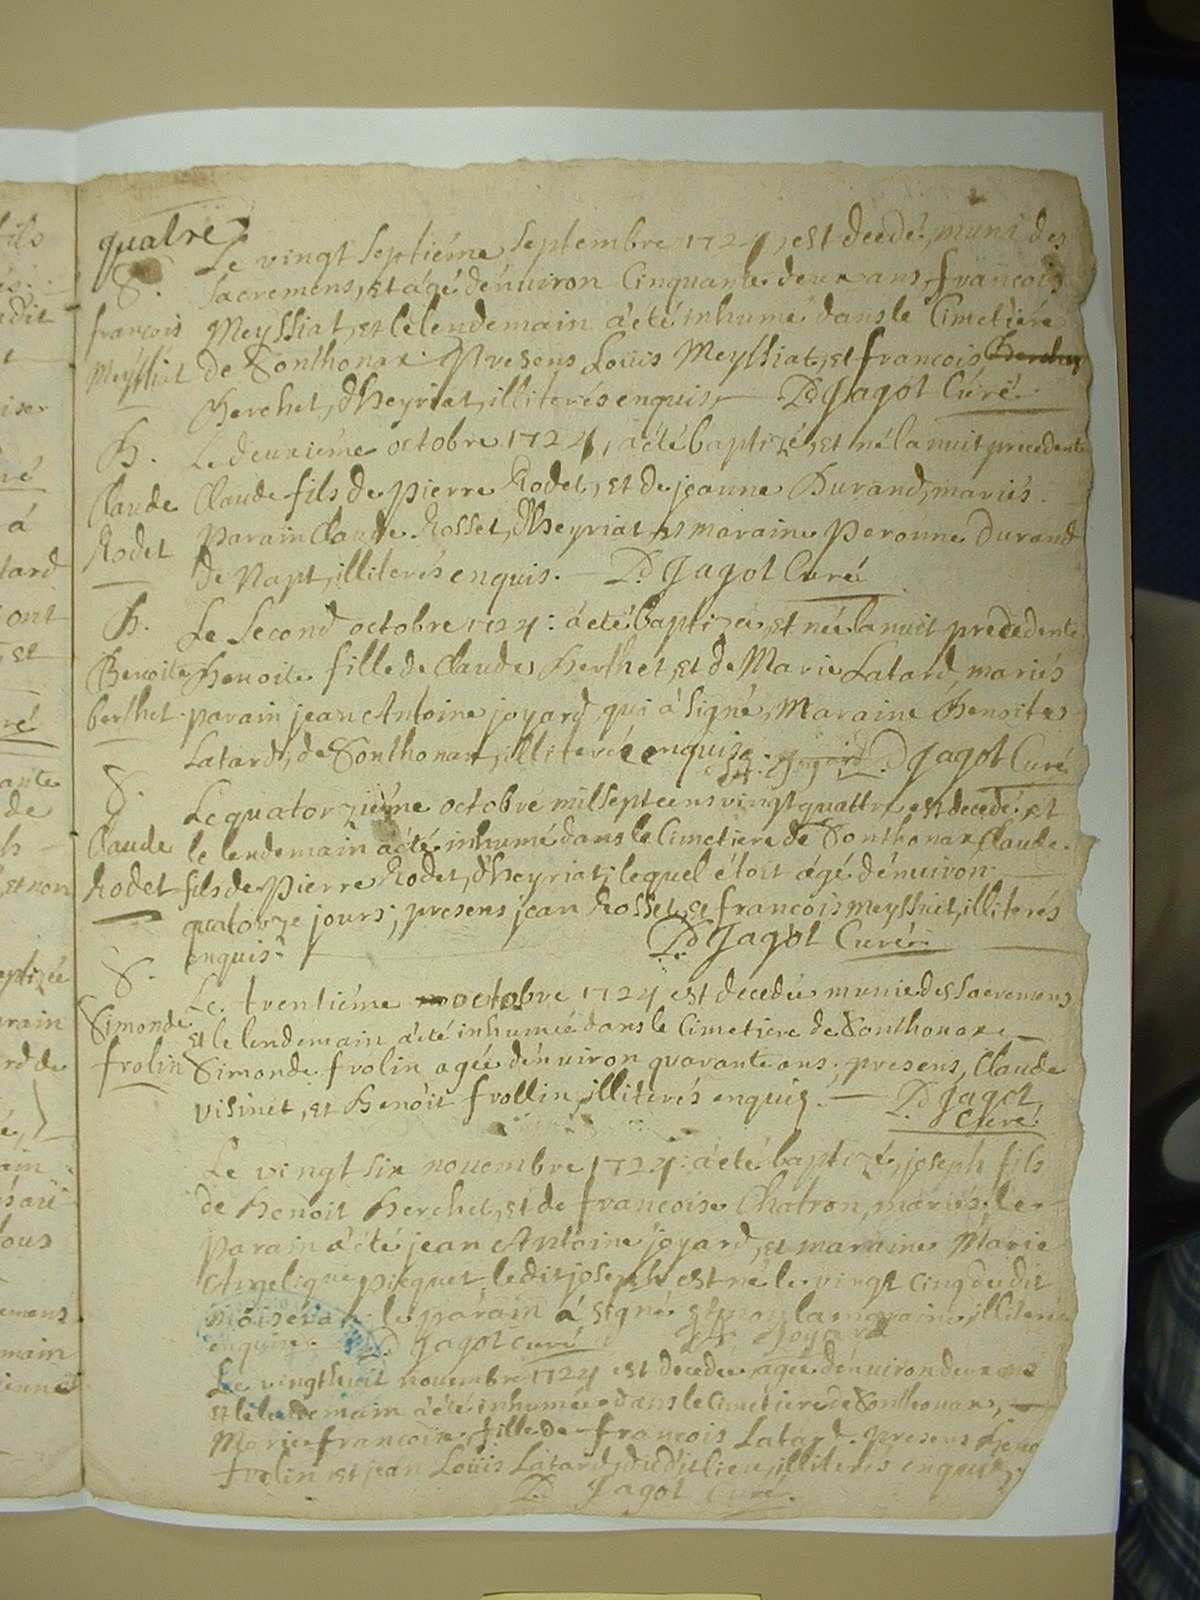 quatre
Le vingt septiéme septembre 1724, est decedé, muni des
S. sacremens, et agé dénuiron Cinquante deux ans, françois
françois Meyssiat, et le lendemain à été inhumé dans le Cimetiere
Meyssiat de Sonthonax. Presens Loüis Meyssiat, et francois
Berchet, d'heyriat, illiterés enquis. D. Jagot Curé.
B. Le deuxiéme octobre 1724, à été baptizé, et né la nuit precedente
Claude Claude fils de pierre Rodet, et de jeanne Durand, mariés.
Rodet Parain Claude Rosset, d'heyriat et maraine Peronne Durand
de Napt, illiterés enquis. D. Jagot Curé
B. Le second octobre 1724: à été baptizée, et née la nuit precedente
Benoite Benoite fille de Claude Berthet, et de Marie Latard, mariés
berthet parain jean Antoine joyard, qui à signé, Maraine Benoite
Latard, de Sonthonax, illiterée enquise. Joyard D Jagot Curé
S. Le quatorziéme octobre mil sept cens vingt quattre est decedé, et
Claude le lendemain à été inhumé dans le Cimetiere de Sonthonax Claude
Rodet fils de Pierre Rodet, d'heyriat, lequel étoit agé dénuiron
quatorze jours; presens jean Rosset, et francois meyssiat, illiterés
enquis. D Jagot Curé.
S. Le trentiéme octobre 1724 est decedée munie des sacremens
Simonde et le lendemain à été inhumée dans le Cimetiere de Sonthonax
frolin Simonde frolin agée dénuiron quarante ans. presens, Claude
visinet, et Benoit frollin, illiterés enquis. D Jagot
Curé.
Le vingt six nouembre 1724: à été baptizé, joseph fils
de Benoit Berchet, et de francoise Chatron, mariés. Le
parain à été jean Antoine joyard, et maraine Marie
Angelique picquet ledit joseph est né le vingt cinq dudit
mois le parain à signé la maraine illiterée
enquise D Jagot curé Joyard
Le vingthuit nouembre 1724 est decedée agée dénuiron deux ans
et le lendemain à été inhumée dans le Cimetiere de Sonthonax,
Marie francoise, fille de francois Latard. presens
frolin et jean Loüis Latard, dudit lieu, illiterés enquis.
D Jagot Curé.